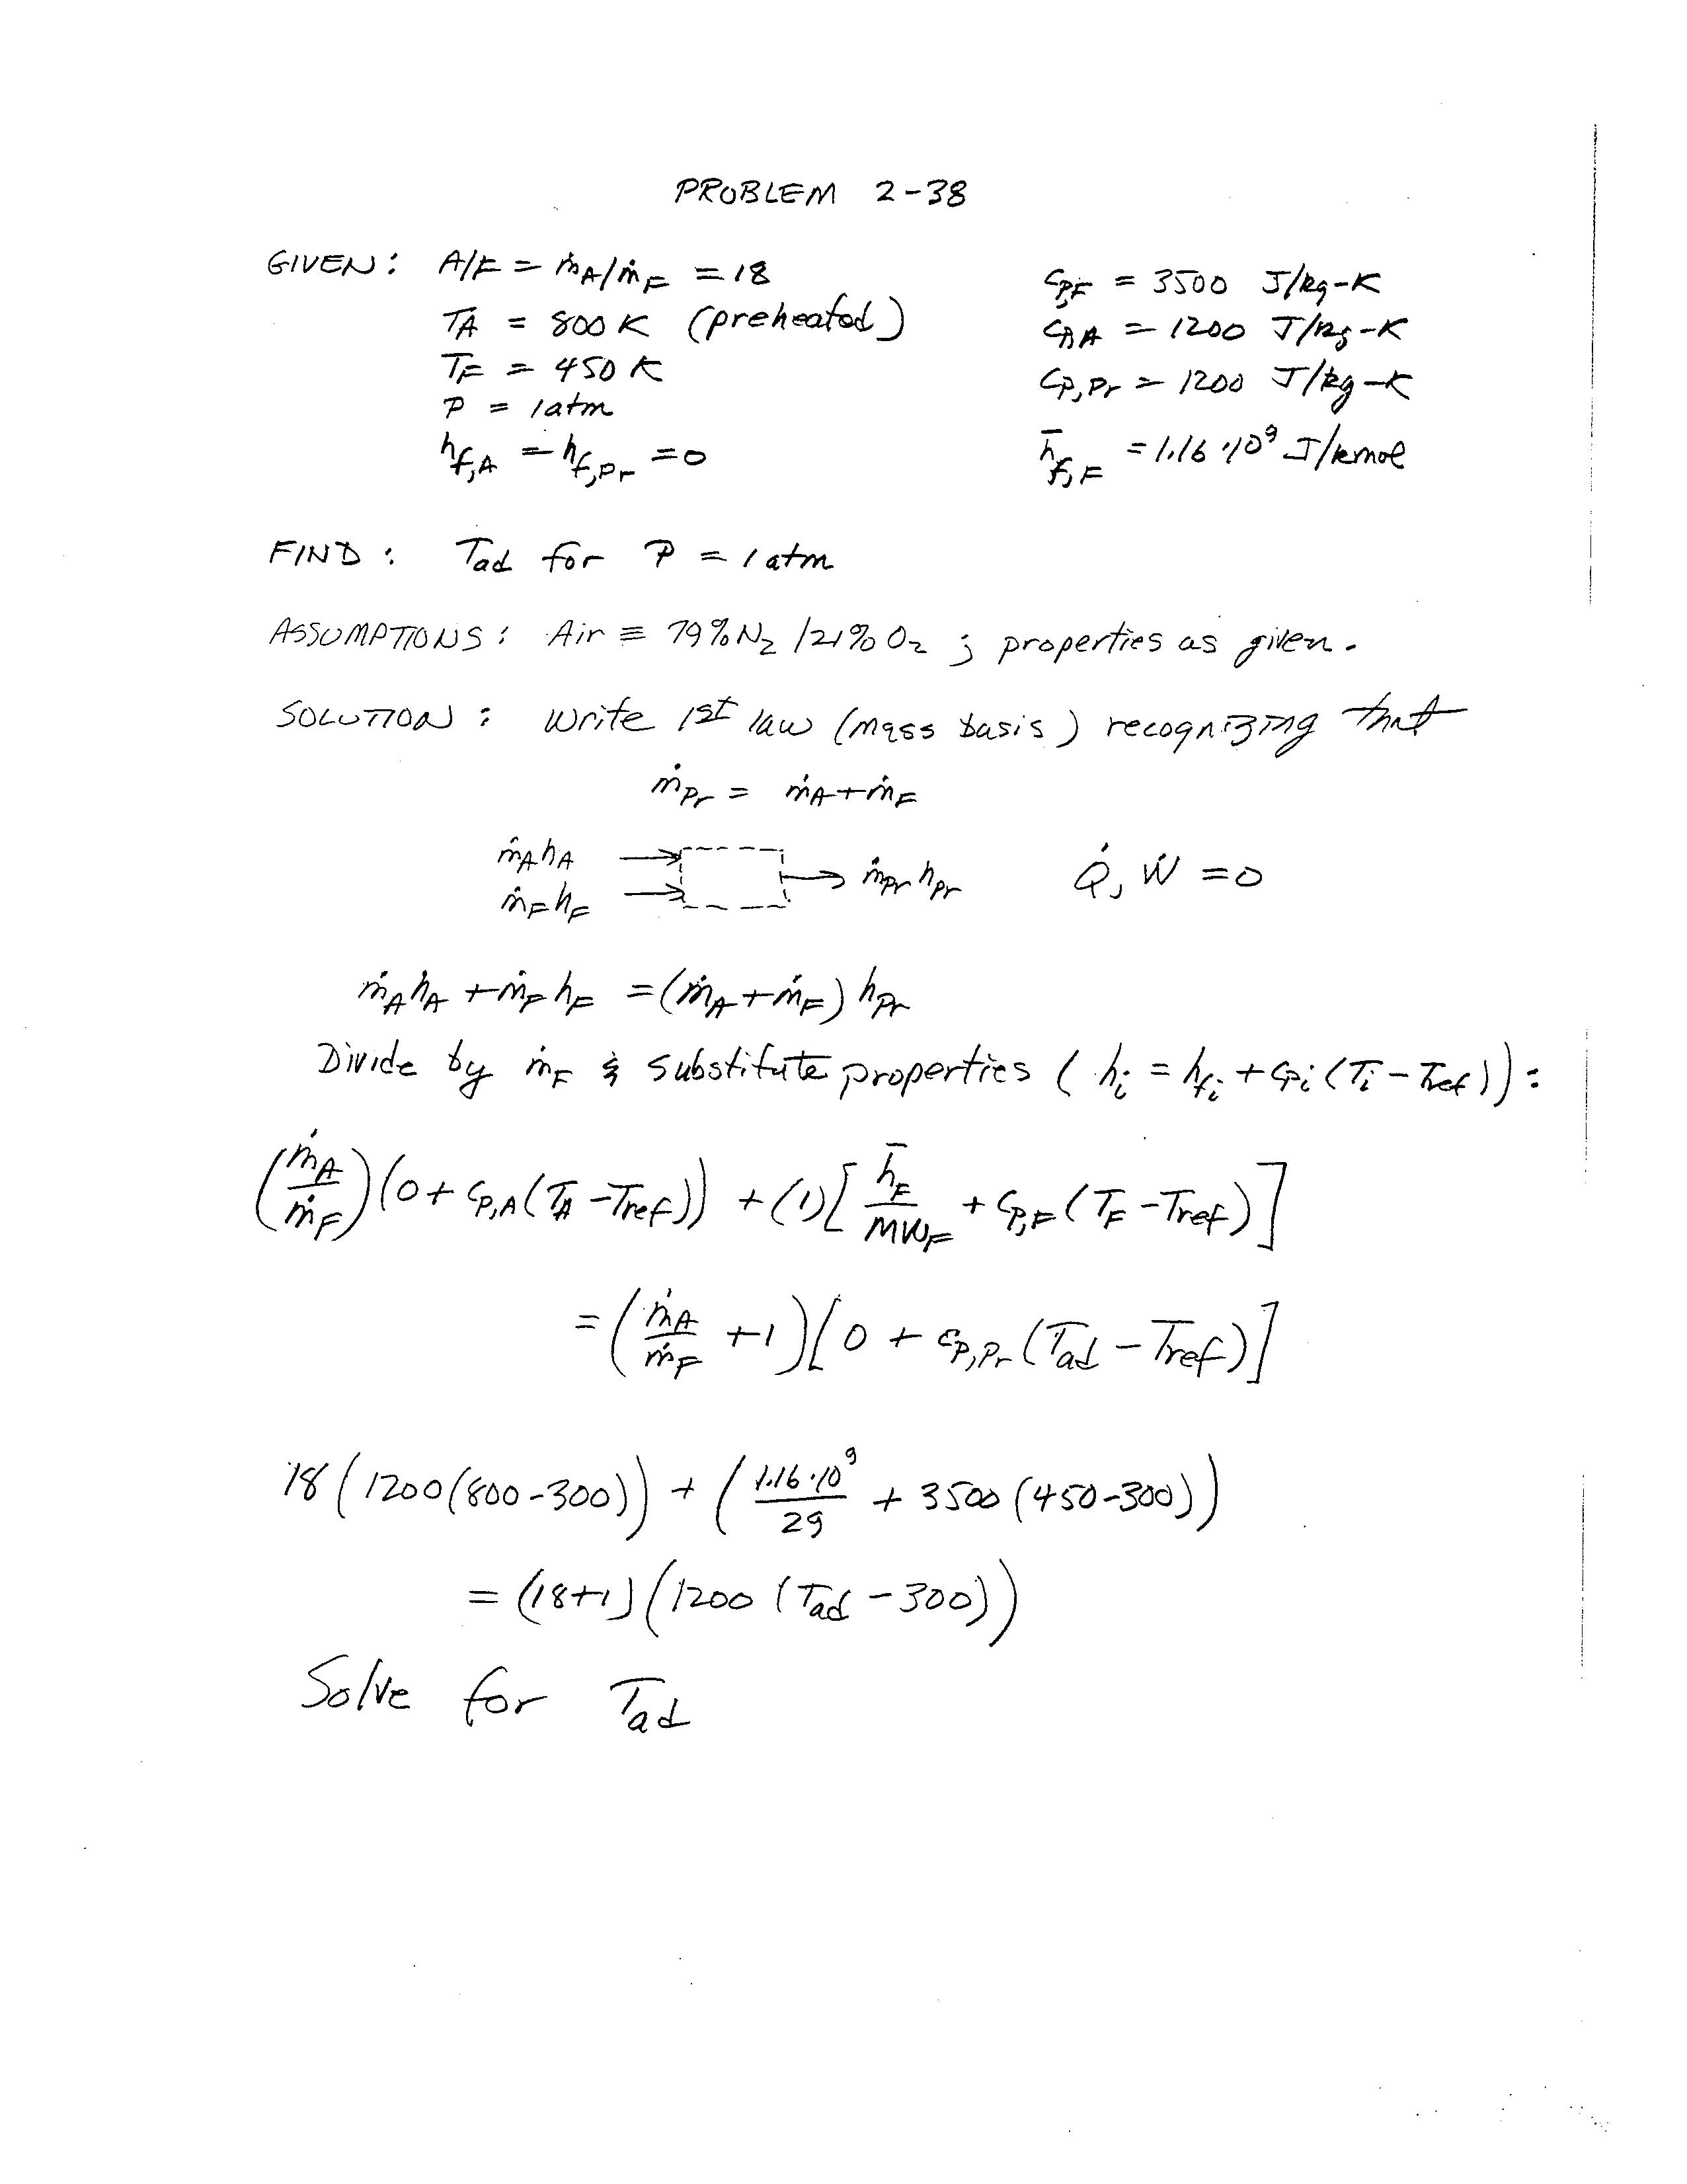 PROBLEM 2-38
GIVEN: A/F = ṁ_A/ṁ_F = 18
T_A = 800 K (preheated)
T_F = 450 K
P = 1 atm
h_f,A = h_f,Pr = 0
c_p,F = 3500 J/kg-K
c_p,A = 1200 J/kg-K
c_p,Pr = 1200 J/kg-K
h̄_f,F = 1.16·10⁹ J/kmol
FIND: T_ad for P = 1 atm
ASSUMPTIONS: Air ≡ 79% N₂ / 21% O₂ ; properties as given.
SOLUTION: Write 1st law (mass basis) recognizing that
ṁ_Pr = ṁ_A + ṁ_F
ṁ_A h_A
ṁ_F h_F
ṁ_Pr h_Pr
Q̇, Ẇ = 0
ṁ_A h_A + ṁ_F h_F = (ṁ_A + ṁ_F) h_Pr
Divide by ṁ_F & substitute properties (h_i = h_f,i + c_p,i (T_i - T_ref)):
(ṁ_A/ṁ_F)(0 + c_p,A (T_A - T_ref)) + (1)[h̄_F/MW_F + c_p,F (T_F - T_ref)]
= (ṁ_A/ṁ_F + 1)[0 + c_p,Pr (T_ad - T_ref)]
18(1200(800-300)) + (1.16·10⁹/29 + 3500(450-300))
= (18+1)(1200(T_ad - 300))
Solve for T_ad